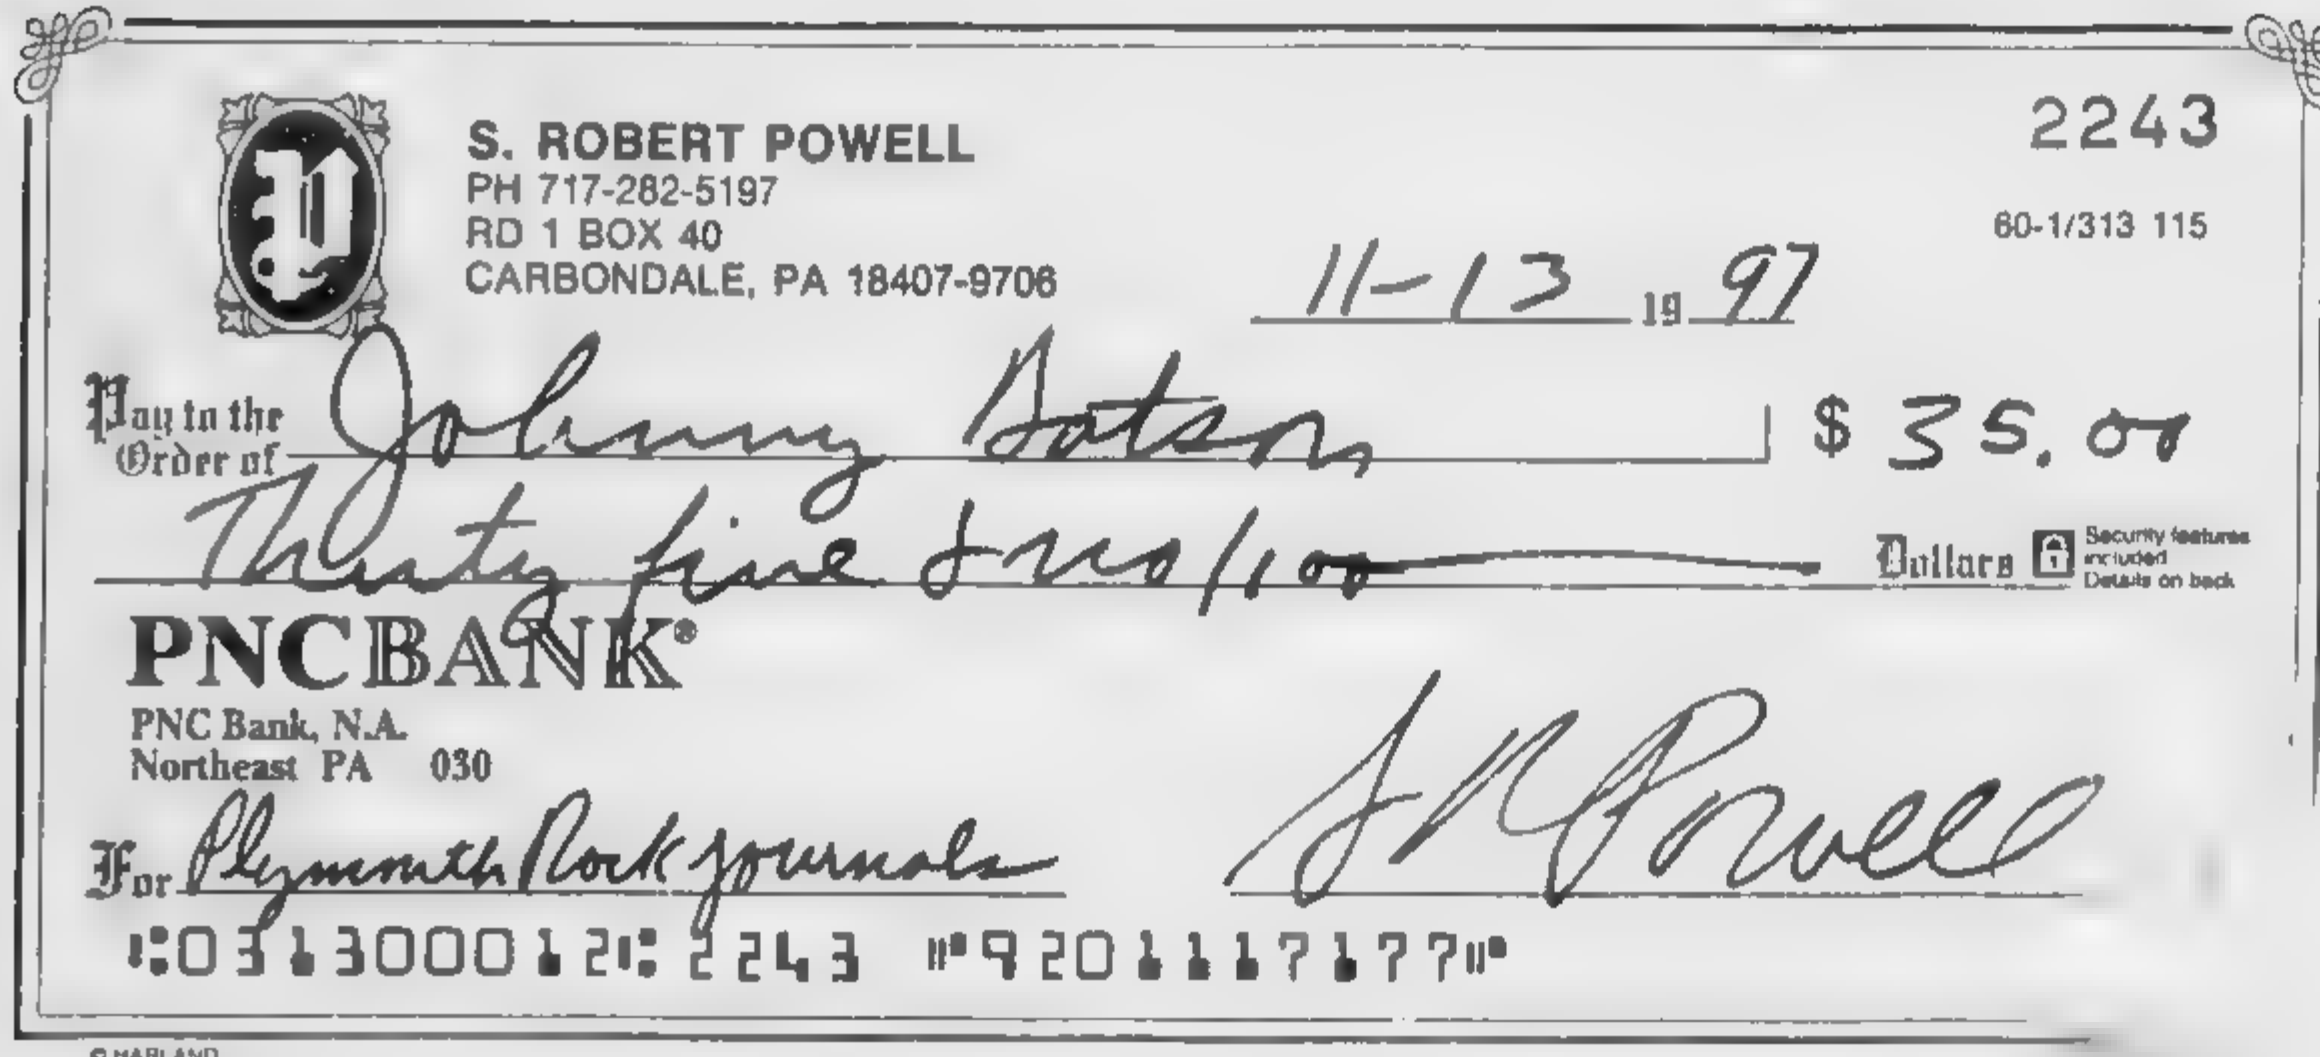 2243
S. ROBERT POWELL
PH 717-282-5197
RD 1 BOX 40
CARBONDALE, PA 18407-9706
60-1/313 115
11-13 19 97
Pay to the Order of Johnny Dotson $ 35.00
Thirty five & no/100 Dollars
Security features
included
Details on back
PNCBANK®
PNC Bank, N.A.
Northeast PA 030
For Plymouth Rock journals S R Powell
⑆031300012⑆ 2243 ⑈9201117177⑈
© HARLAND